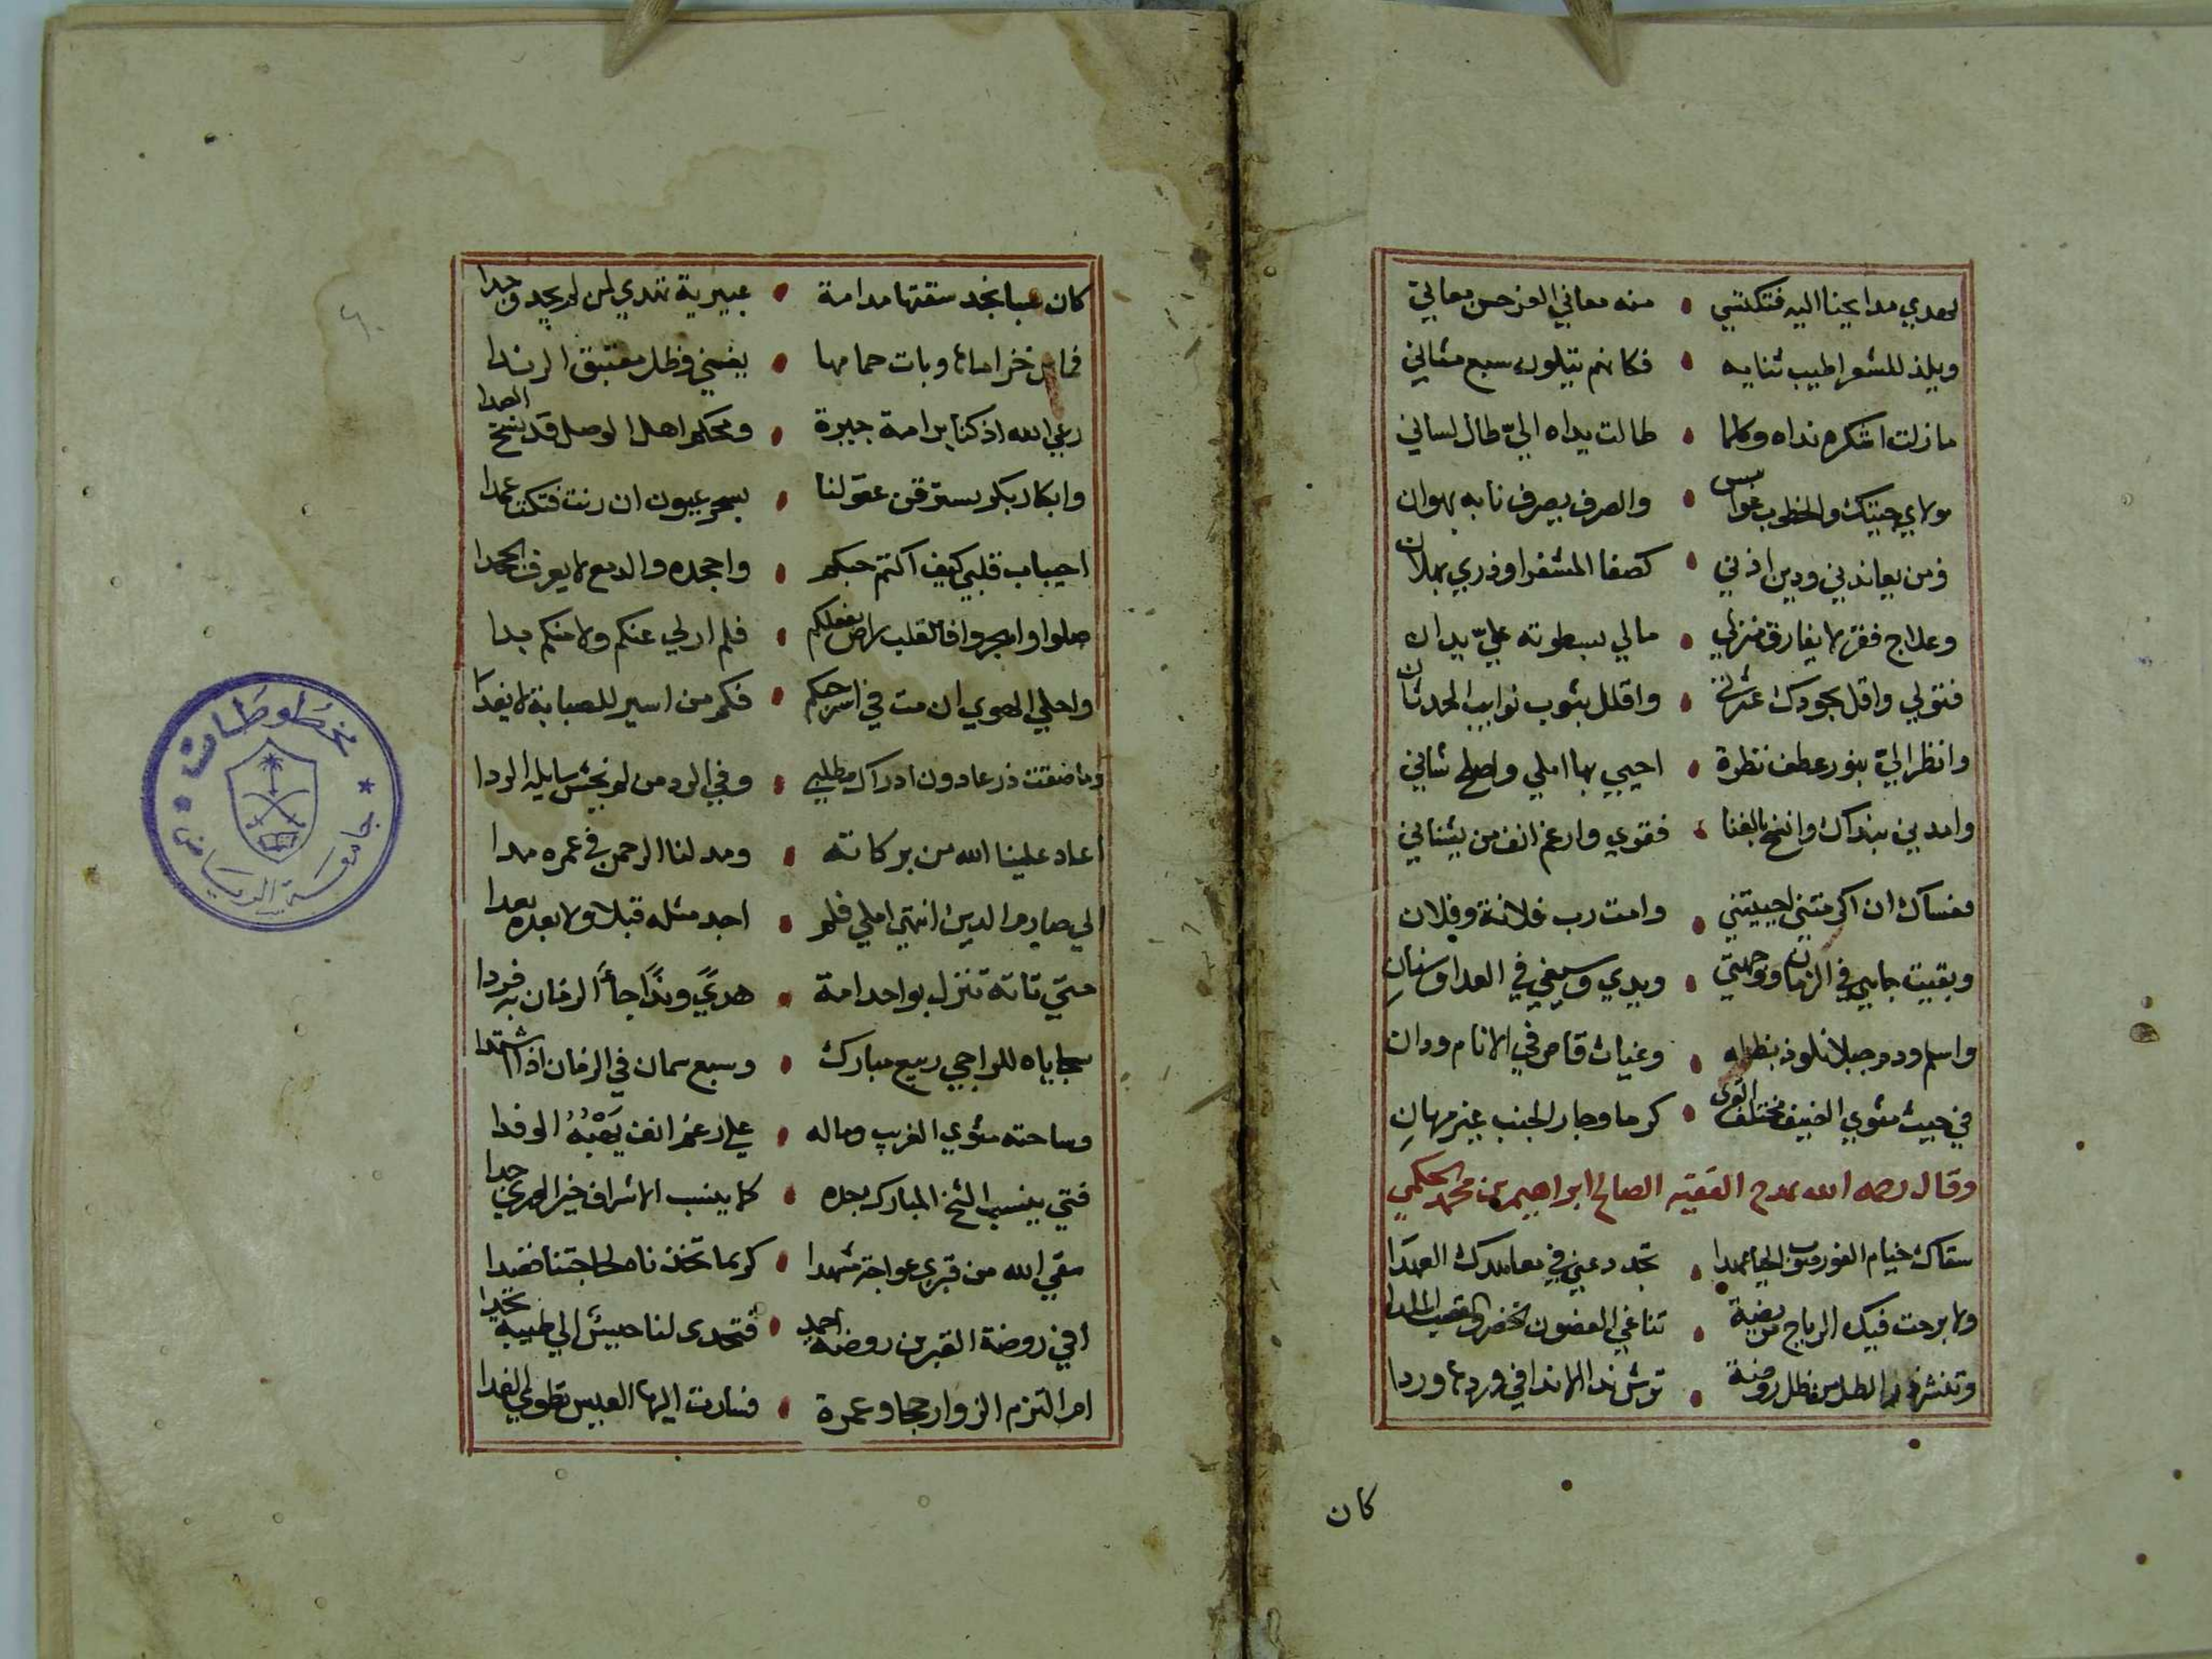 تهدي مدايحنا اليه فتكتسي • منه معاني العز حسن معاني
ويلذ للشعر اطيب ثنايه • فكانهم يتلون سبع مثاني
ما زلت اشكره نداه وكلما • طالت يداه اليّ طال لساني
مولاي جيتك والخطوب عوابس • والصرف يصرف نابه بهوان
فمن يعاندني ودين اذني • كصفا المشقر اوذري بهلان
وعلاج فقر لا يفارق منزلي • مالي بسطوته عليّ يدان
فتولي واقل بجودك عثرتي • واقلل بثوب نوايب الحدثان
وانظر اليّ بنور عطف نظرة • احيي بها املي واصلح شاني
وامدني بنداك وانخ بالغنا • فقوي وارغم انف من يشناني
فعساك ان اكرمتني احييتني • وامت رب فلانة وفلان
وبقيت جاهي في الزمان ووجهتي • ويدي وسيفي في العدا وسنانِ
واسلم ودم جبلا نلوذ بظله • وغياث قاص في الانام ودان
في حيث مثوي الضيف مختلف القرى • كرما وجار الجنب غير مهانِ
وقال رحمه الله يمدح الفقيه الصالح ابراهيم بن محمد الحكمي
سقاك خيام الغور صوب الحيا عهدا • تجدد عني في معاهدك العهدَا
ولا برحت فيك الرياح مريضة • تناغي الغصون الخضر والقضب الملدا
وتنشر الطل من ظل روضة • ترش ندا الاندا في وردها وردا
كان
كان صبا نجد سقتها مدامة • عبيرية تهدي لمن لم يجد وجدا
فماس خزاماها وبات حمامها • يغني فظل معتبق الرندا
رعي الله اذ كنا برامة جيرة • ومحكم اهل الوصل قد نسخ الصدا
وابكار بكر يسترقن عقولنا • بسحر عيون ان رنت فتكت عمدا
احباب قلبي كيف اكتم حبكم • واجحده والدمع لا يعرف الجحدا
صلوا او اهجروا فالقلب راض بفعلكم • فلم ار لي عنكم ولا منكم بدا
واحلي الهوي ان مت في اسر حبكم • فكم من اسير للصبابة لا يفدَا
وما ضقت ذرعا دون ادراك مطلبي • وفي الرد من لم يخش سايله الردا
اعاد علينا الله من بركاته • ومد لنا الرحمن في عمره مدا
الي صارم الدين انتهي املي فلم • اجد مثله قبلا ولا بعده بعدا
متي تاته تنزل بواحد امة • هديً وندًا جآء الزمان به فردا
سجاياه للراجي ربيع مبارك • وسبع سمان في الزمان اذا اشتدا
وساحته مثوي الغريب وماله • علي رغم انف يَهَبُهُ الوفدا
فتي ينسب الشيخ المبارك جده • كما ينسب الاشراف خير الوري جدا
سقي الله من قبري عواجة مشهدا • كريما تخذناه لحاجتنا قصدا
افي روضة القبرين روضة احمد • فتحدى لنا حبيش الي طيبه تحدا
ام التزم الزوار حجا وعمرة • فسارت اليها العيس تطوي الفدا
مخطوطات
جامعة الرياض